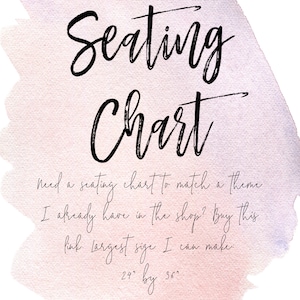 Seating
Chart
Need a seating chart to match a theme
I already have in the shop? Buy this
link Largest size I can make
24" by 36"